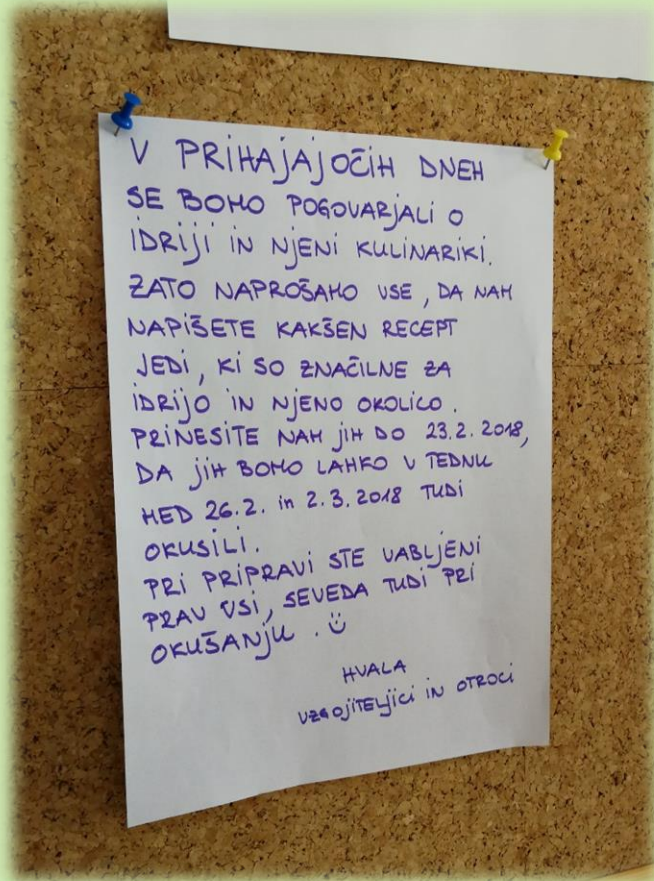 V PRIHAJAJOČIH DNEH
SE BOMO POGOVARJALI O
IDRIJI IN NJENI KULINARIKI.
ZATO NAPROŠAMO VSE, DA NAM
NAPIŠETE KAKŠEN RECEPT
JEDI, KI SO ZNAČILNE ZA
IDRIJO IN NJENO OKOLICO.
PRINESITE NAM JIH DO 23.2.2018,
DA JIH BOMO LAHKO V TEDNU
MED 26.2. in 2.3.2018 TUDI
OKUSILI.
PRI PRIPRAVI STE VABLJENI
PRAV VSI, SEVEDA TUDI PRI
OKUŠANJU. ☺
HVALA
VZGOJITELJICI IN OTROCI